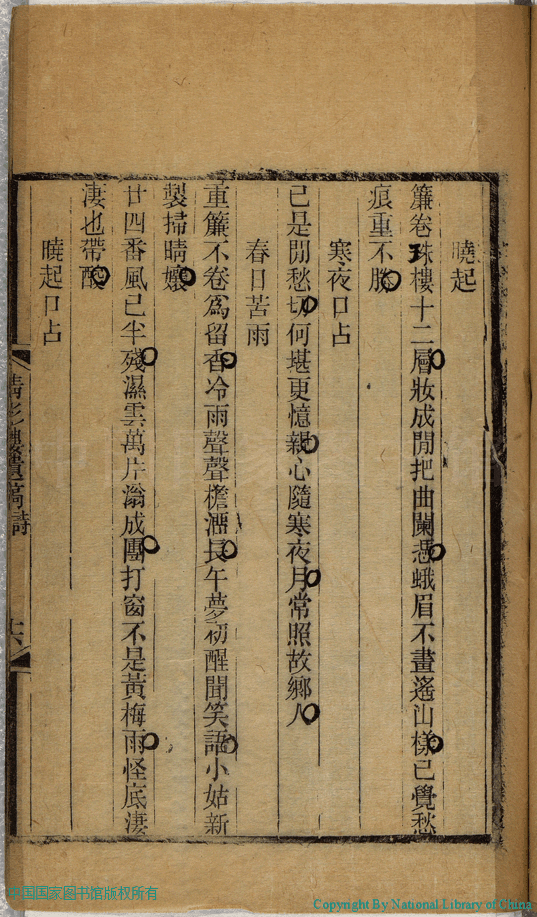 曉起
簾卷珠樓十二層妝成閒把曲闌憑蛾眉不畫遙山樣已覺愁
痕重不勝
寒夜口占
已是閒愁切何堪更憶親心隨寒夜月常照故鄉人
春日苦雨
重簾不卷爲留香冷雨聲聲檐溜長午夢初醒聞笑語小姑新
製掃晴孃
廿四番風已半殘濕雲萬片滃成團打窗不是黃梅雨怪底淒
淒也帶酸
曉起口占
清影樓遺稿詩
十六
中国国家图书馆版权所有
Copyright By National Library of China